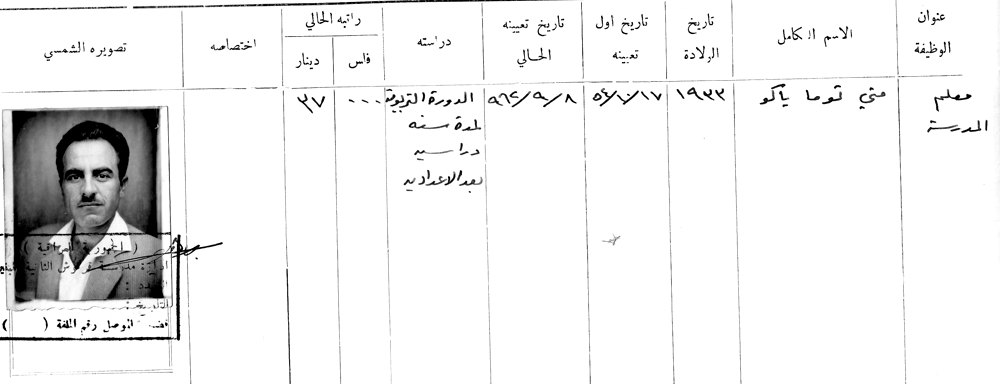 عنوان الوظيفة
الاسم الكامل
تاريخ الولادة
تاريخ اول تعيينه
تاريخ تعيينه الحالي
دراسته
راتبه الحالي
فلس
دينار
اختصاصه
تصويره الشمسي
معلم المدرسة
متي توما ياكو
١٩٣٣
٥٤/١٠/١٧
٩٦٢/٩/٨
الدورة التربوية
لمدة سنه
دراسيه
بعد الاعداديه
٠٠٠
٣٧
( الجمهورية العراقية )
ادارة مدرسة الثانية
العدد :
التاريخ :
الموصل رقم الملفة ( )